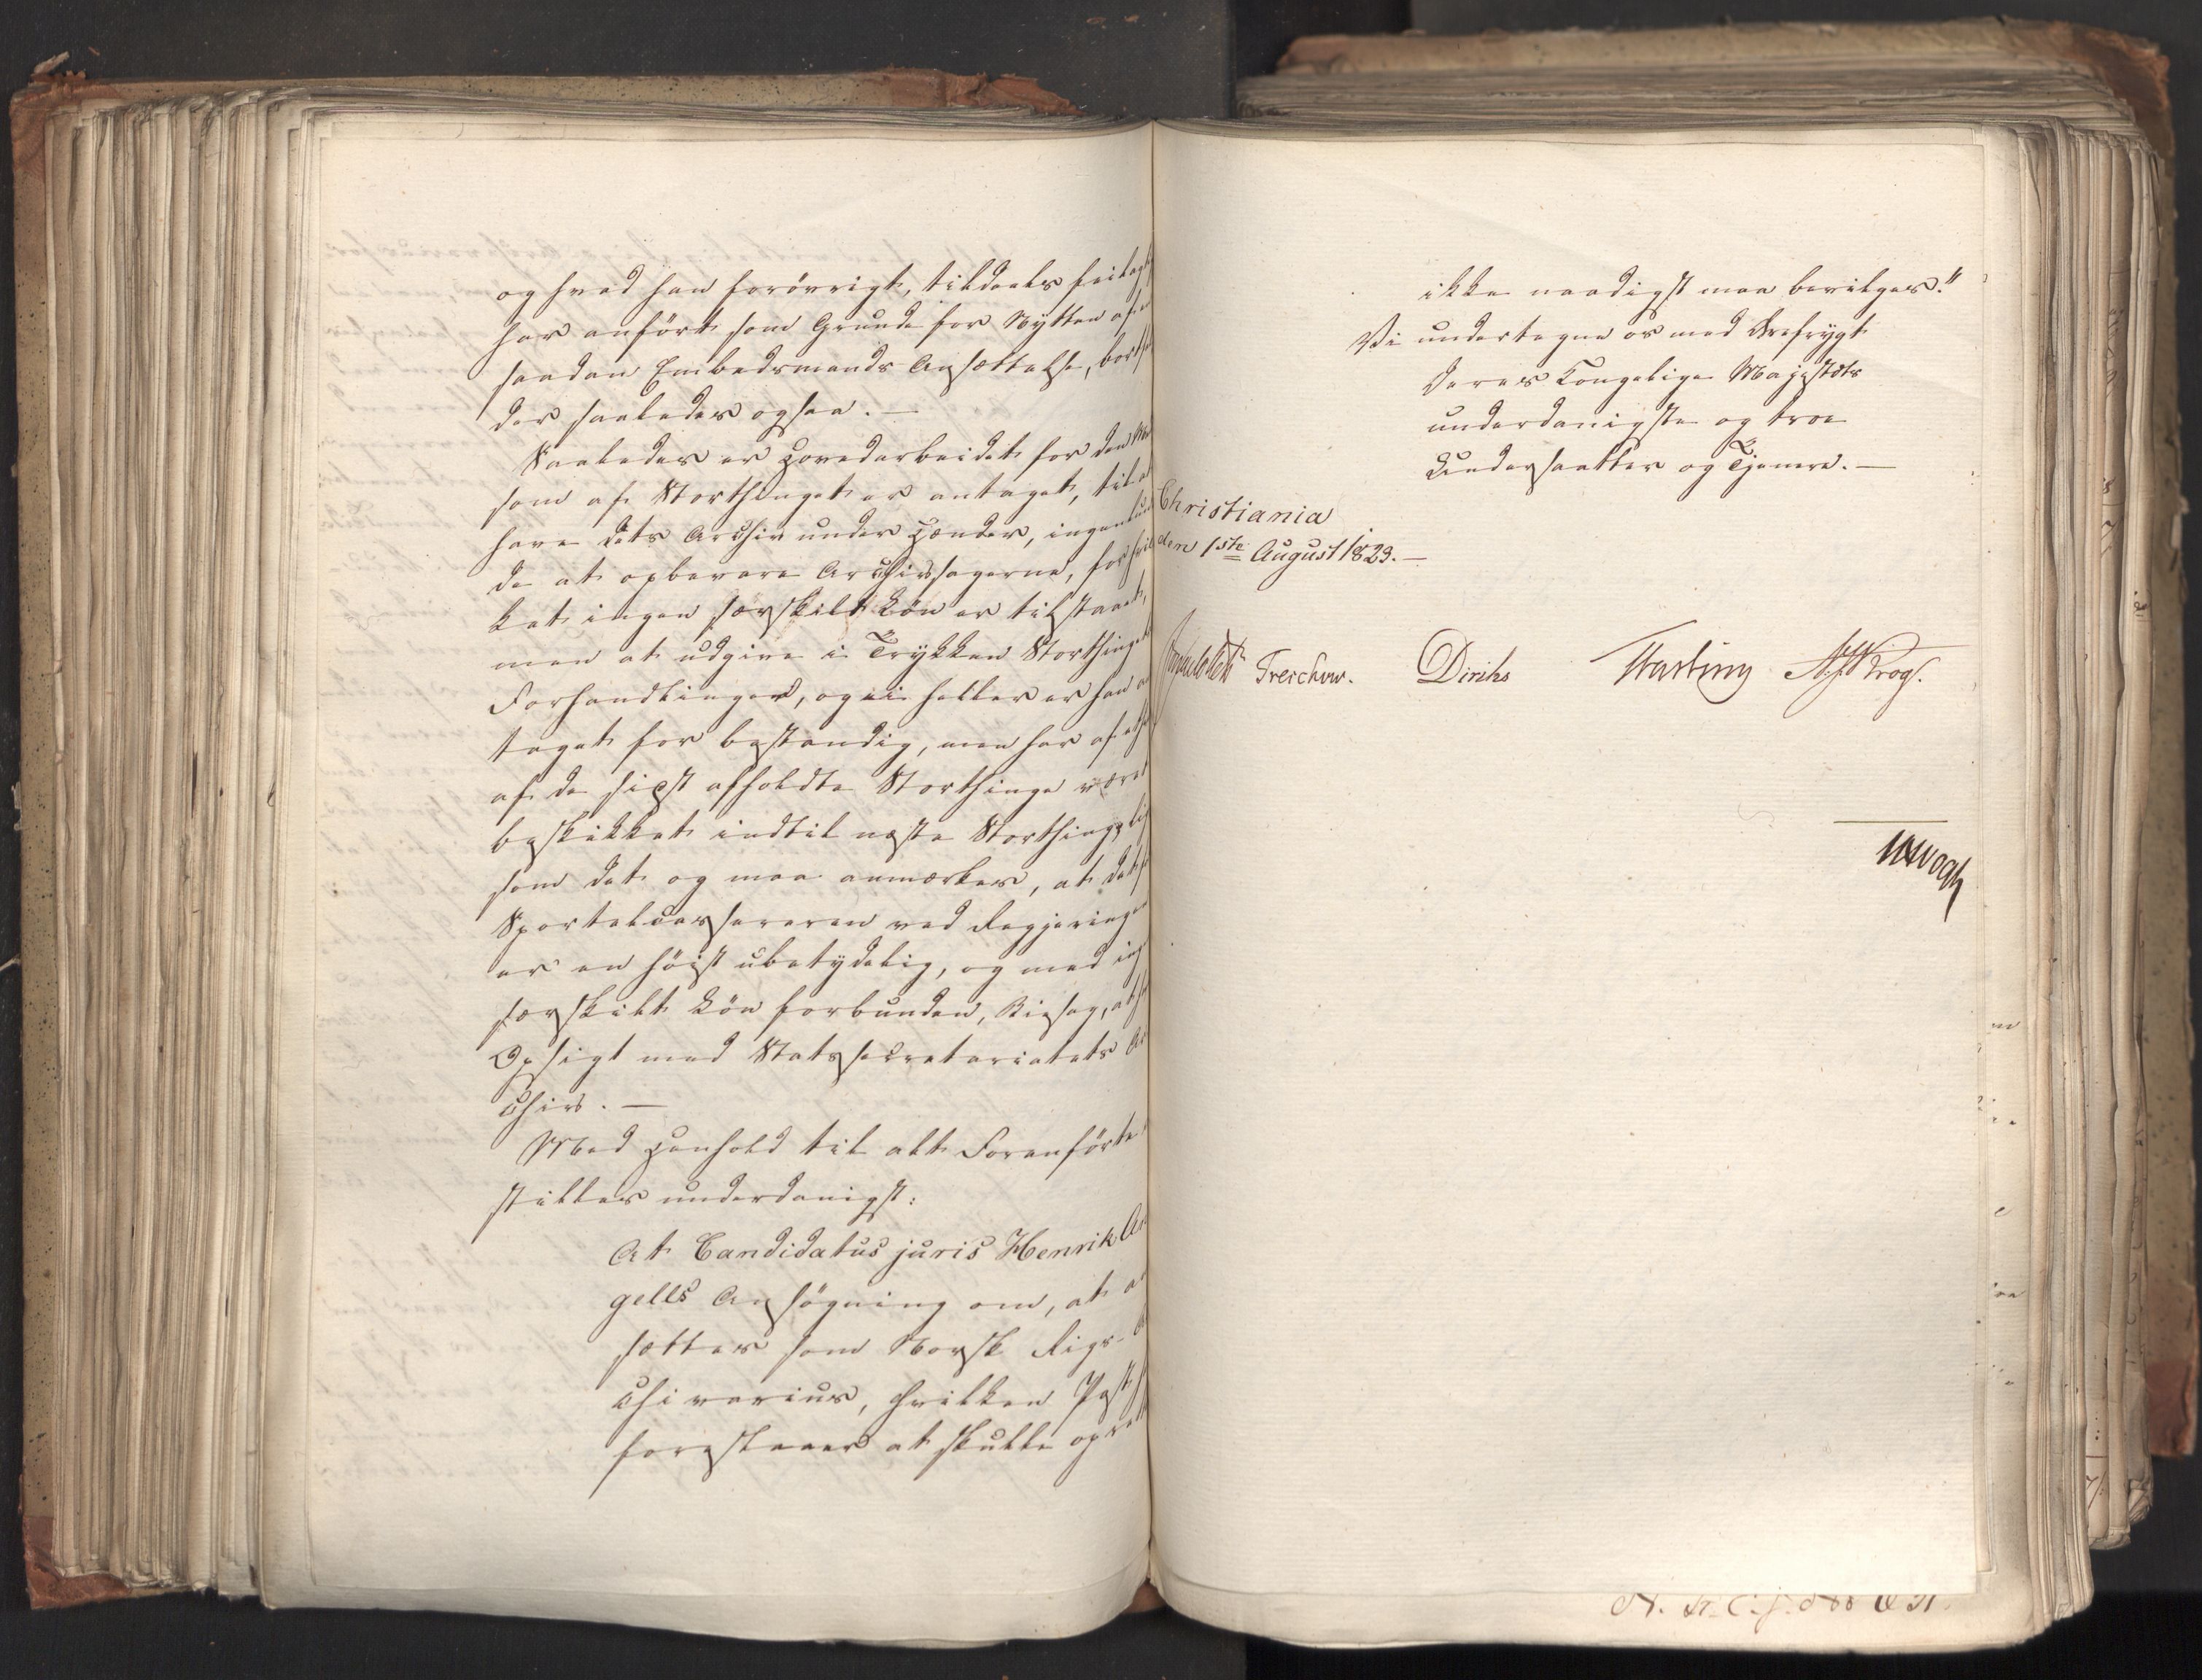 og hvad han forövrigt, tildeels feilagt
har anfört som Grunde for Nytten af en
saadan Embedsmands Ansættelse, bortfal
der saaledes ogsaa. —
Saaledes er Hovedarbeidet for den Man
som af Storthinget er antaget, til at
have dets Archiv under Hænder, ingenlun
de at opbevare Archivsagerne, for hvil
ket ingen særskilt Lön er tilstaaet,
men at udgive i Trykken Storthingets
Forhandlinger, og ei heller er han an
taget for bestandig, men har af ethv
af de sidst afholdte Storthinge været
beskikket indtil næste Storthing, lig
som det og maa anmærkes, at det for
Sportelcassereren ved Regjeringen
er en höist ubetydelig, og med ing
særskilt Lön forbunden, Biesag, at have
Opsigt med Statssecretariatets Ar
chiv. —
Med Henhold til alt Foranförte ind
stilles underdanigst:
At Candidatus juris Henrik An
gells Ansögning om, at an
sættes som Norsk Rigs-Ar
chivarius, hvilken Post han
foreslaaer at skulle oprett
ikke naadigst maa bevilges."
Vi undertegne os med Ærefrygt
Deres Kongelige Majestæts
underdanigste og troe
Undersaatter og Tjenere. —
Christiania
den 1ste August 1823. —
Treschow. Diriks Hasting N. J. Krog.